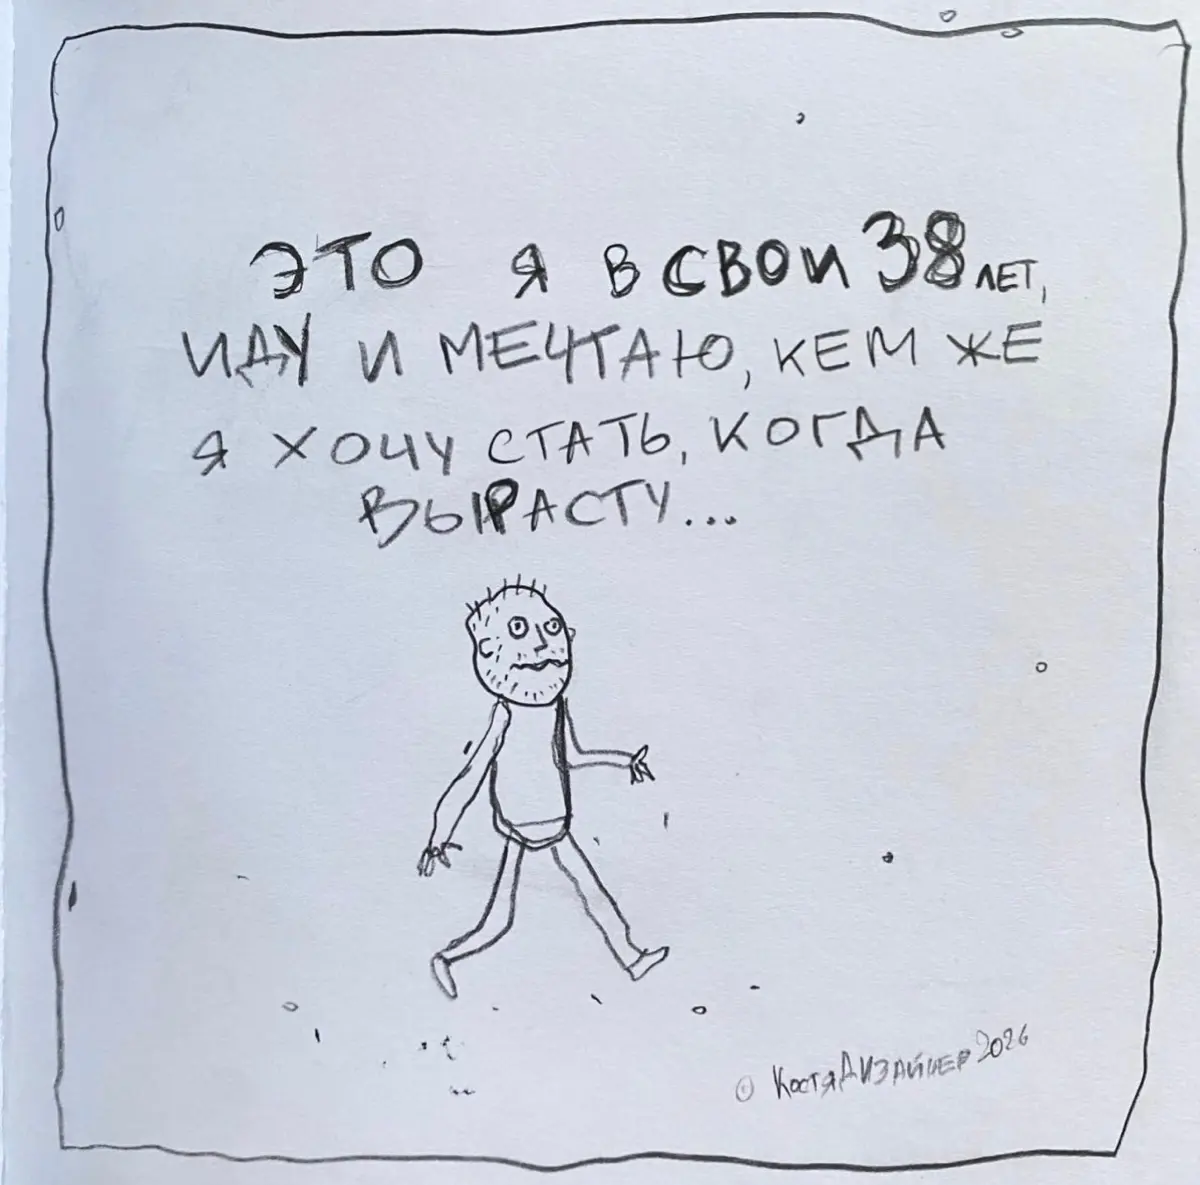 ЭТО Я В СВОИ 38 ЛЕТ,
ИДУ И МЕЧТАЮ, КЕМ ЖЕ
Я ХОЧУ СТАТЬ, КОГДА
ВЫРАСТУ...
© КОСТЯ ДИЗАЙНЕР 2026